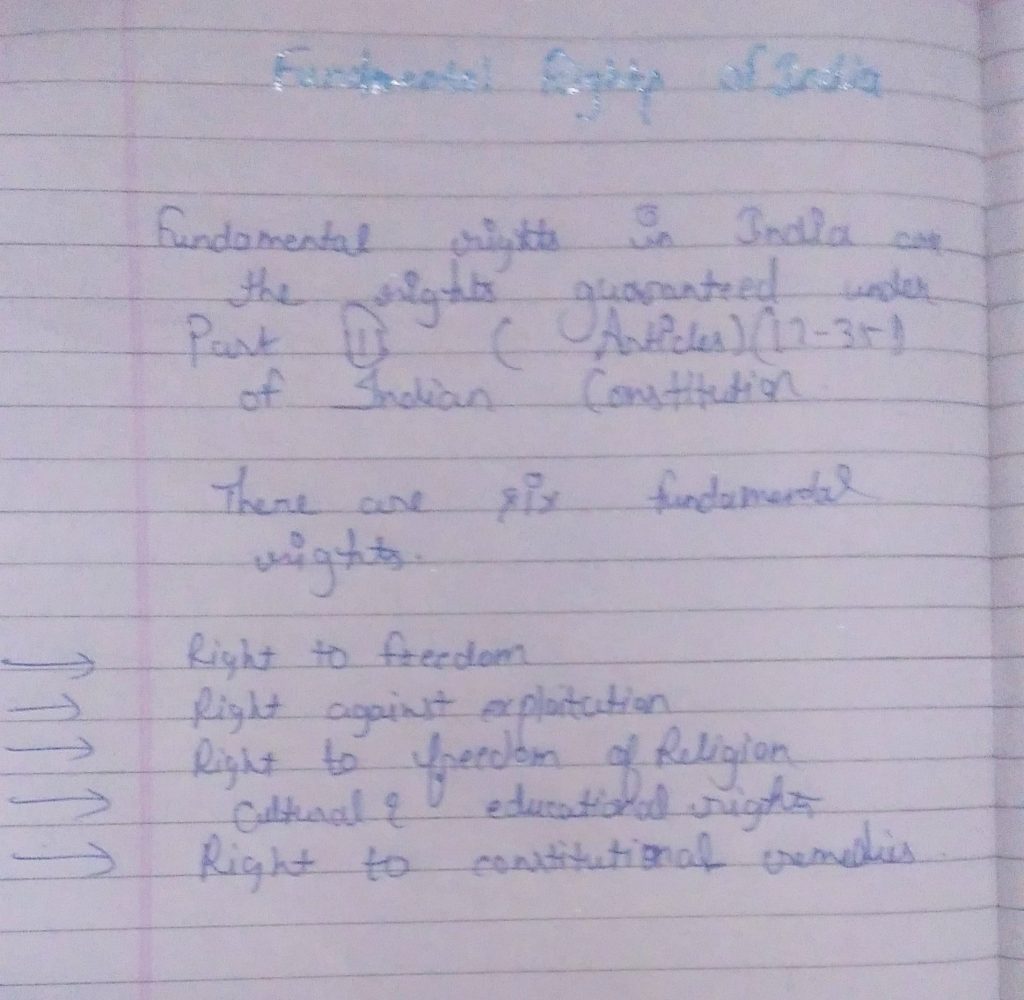 Fundamental Rights of India
Fundamental rights in India are
the rights guaranteed under
Part (Articles) (12-35)
of Indian Constitution
There are six fundamental
rights.
→ Right to freedom
→ Right against exploitation
→ Right to freedom of Religion
→ Cultural & educational rights
→ Right to constitutional remedies